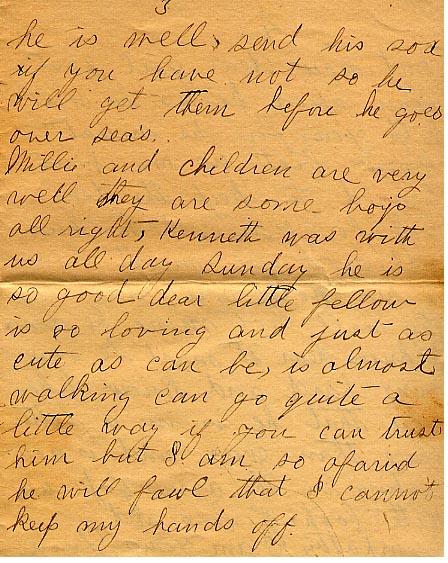 3
he is well, send his sox
if you have not so he
will get them before he goes
over sea's.
Millie and children are very
well they are some boys
all right, Kenneth was with
us all day Sunday he is
so good dear little fellow
is so loving and just as
cute as can be, is almost
walking can go quite a
little way if you can trust
him but I am so afarid
he will fawl that I cannot
keep my hands off.